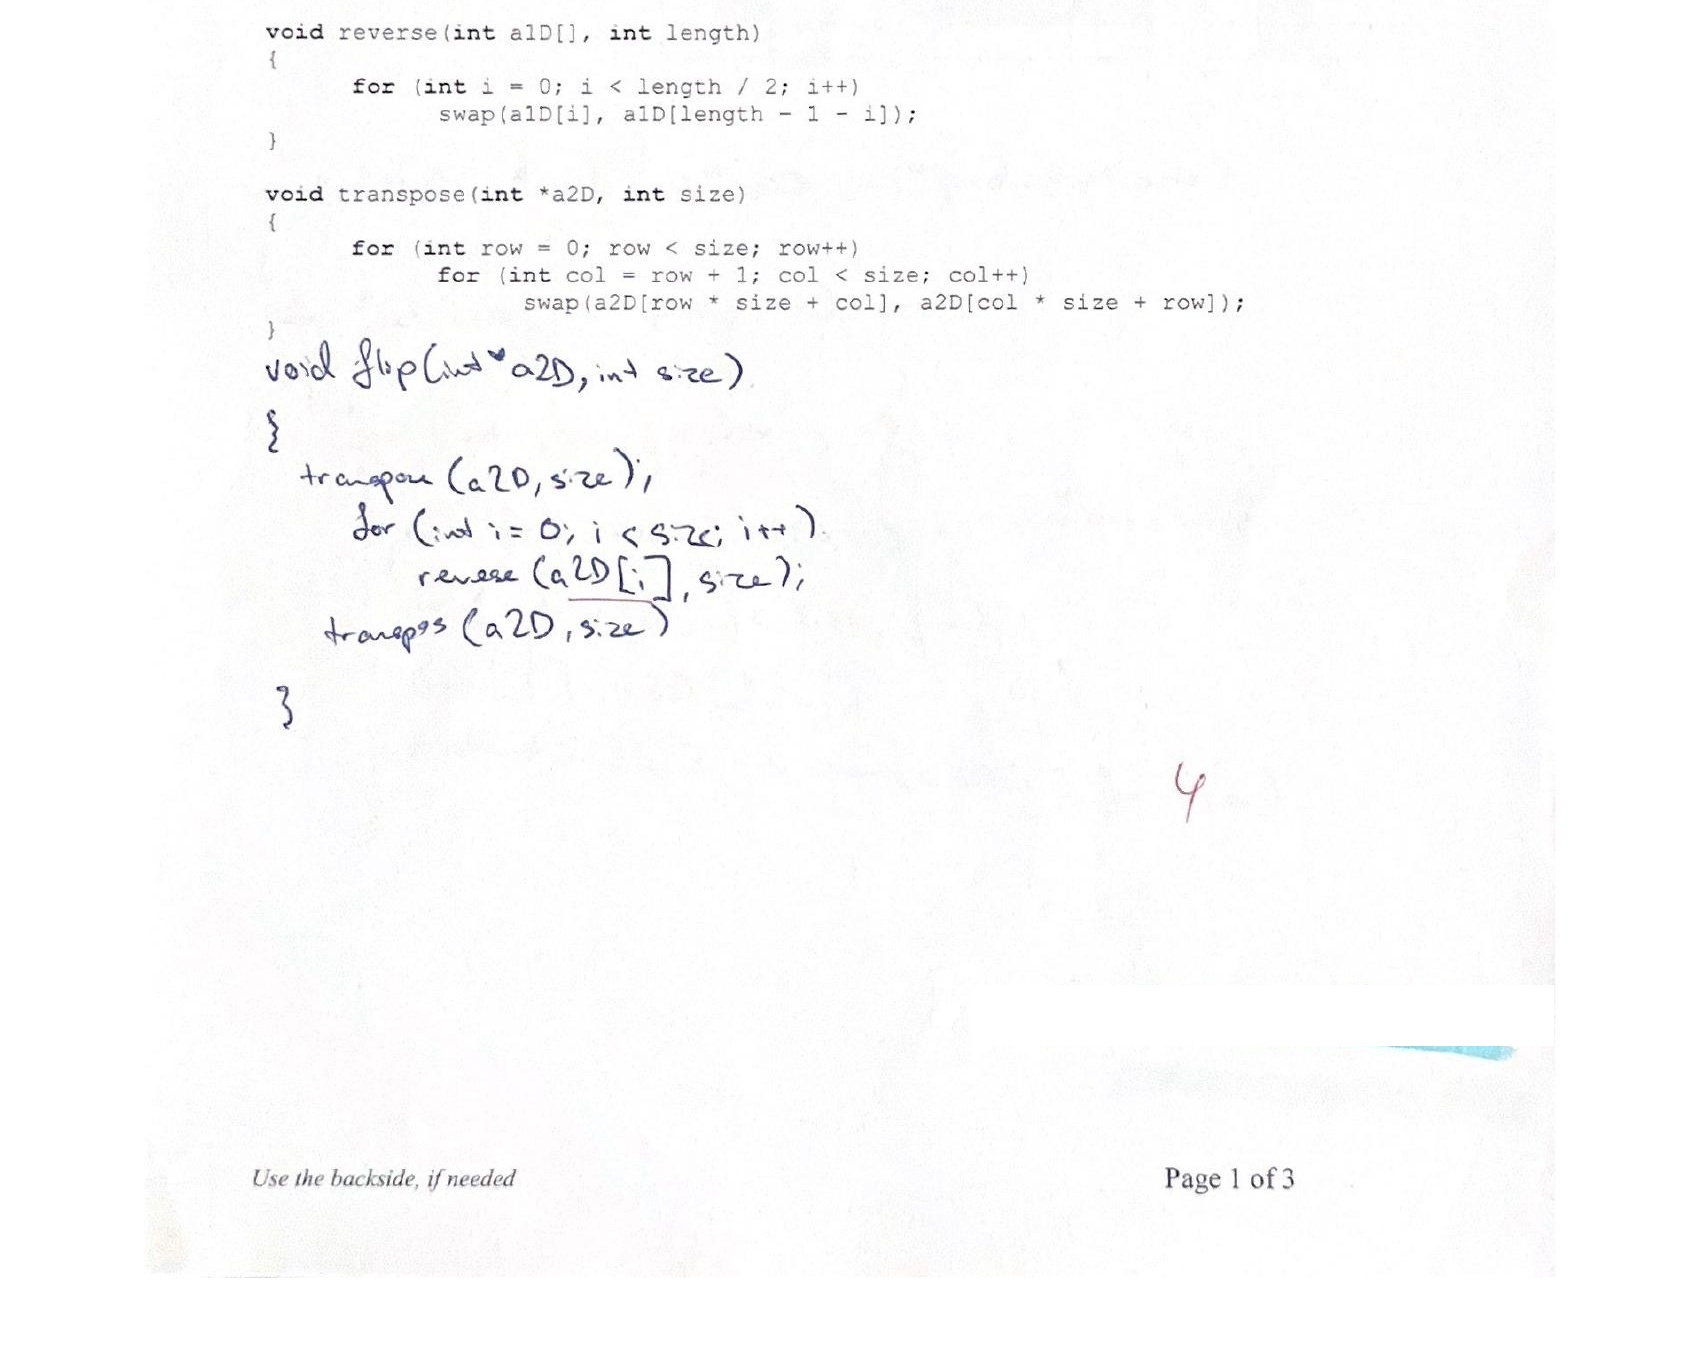 void reverse(int a1D[], int length)
{
for (int i = 0; i < length / 2; i++)
swap(a1D[i], a1D[length - 1 - i]);
}
void transpose(int *a2D, int size)
{
for (int row = 0; row < size; row++)
for (int col = row + 1; col < size; col++)
swap(a2D[row * size + col], a2D[col * size + row]);
}
void flip(int * a2D, int size)
{
transpose (a2D, size);
for (int i = 0; i < size; i++)
reverse (a2D[i], size);
transpos (a2D, size)
}
4
Use the backside, if needed
Page 1 of 3